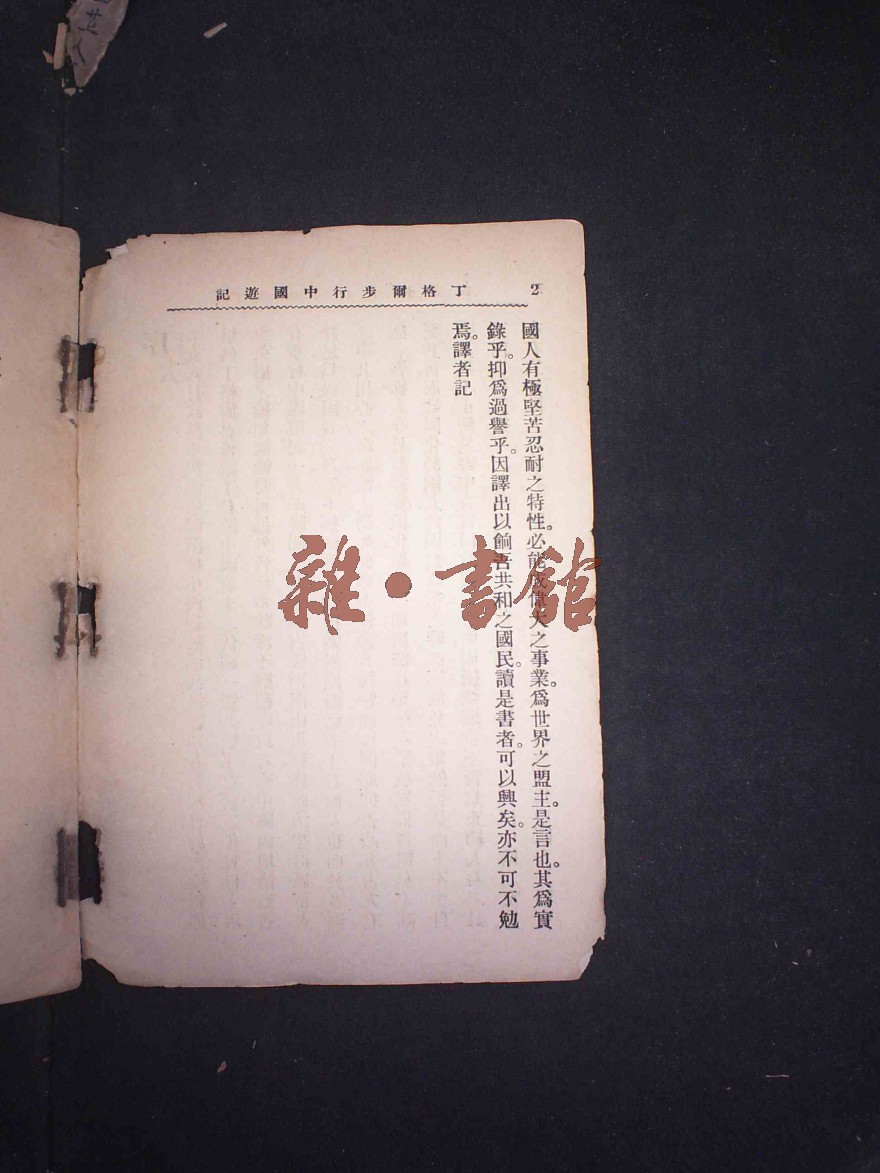 丁格爾步行中國遊記
2
國人有極堅苦忍耐之特性。必能成偉大之事業。爲世界之盟主。是言也。其爲實
錄乎。抑爲過譽乎。因譯出以餉吾共和之國民。讀是書者。可以興矣。亦不可不勉
焉。譯者記
雜·書館